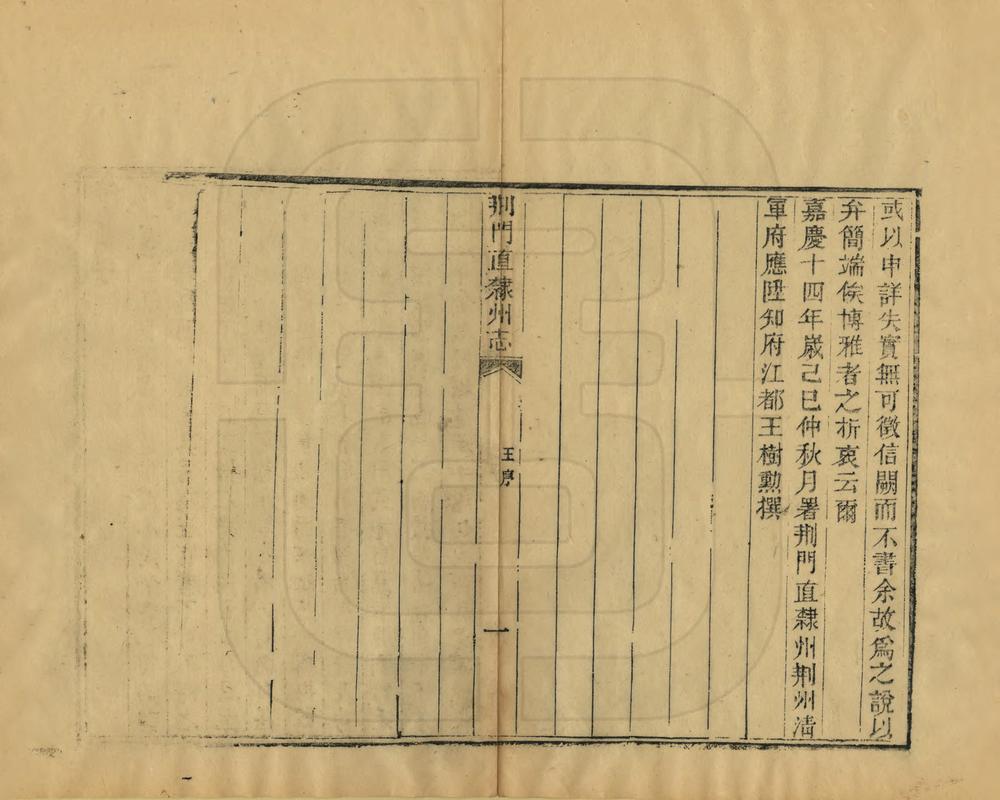 或以申詳失實無可徵信闕而不書余故爲之說以
弁簡端俟博雅者之折衷云爾
嘉慶十四年歲己巳仲秋月署荆門直隸州荆州清
軍府應陞知府江都王樹勲撰
荆門直隸州志
王序
一